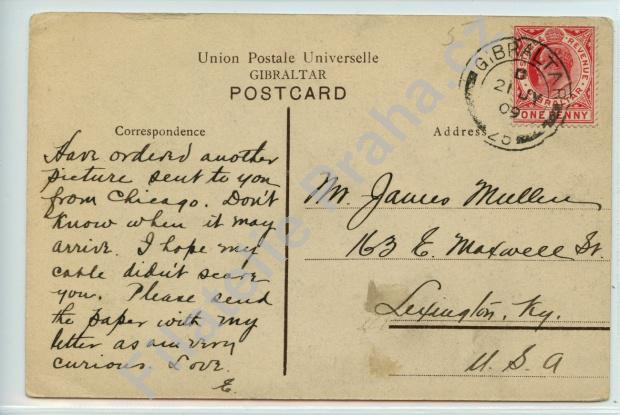 Union Postale Universelle
GIBRALTAR
POSTCARD
Correspondence
Have ordered another
picture sent to you
from Chicago. Don't
know when it may
arrive. I hope my
cable didn't scare
you. Please send
the paper with my
letter as am very
curious. Love.
E.
Address
Mr. James Mullen
163 E. Maxwell St.
Lexington, Ky.
U. S. A
GIBRALTAR
D
21 JY
09
& REVENUE
GIBRALTAR
ONE PENNY
Filatelie Praha.cz